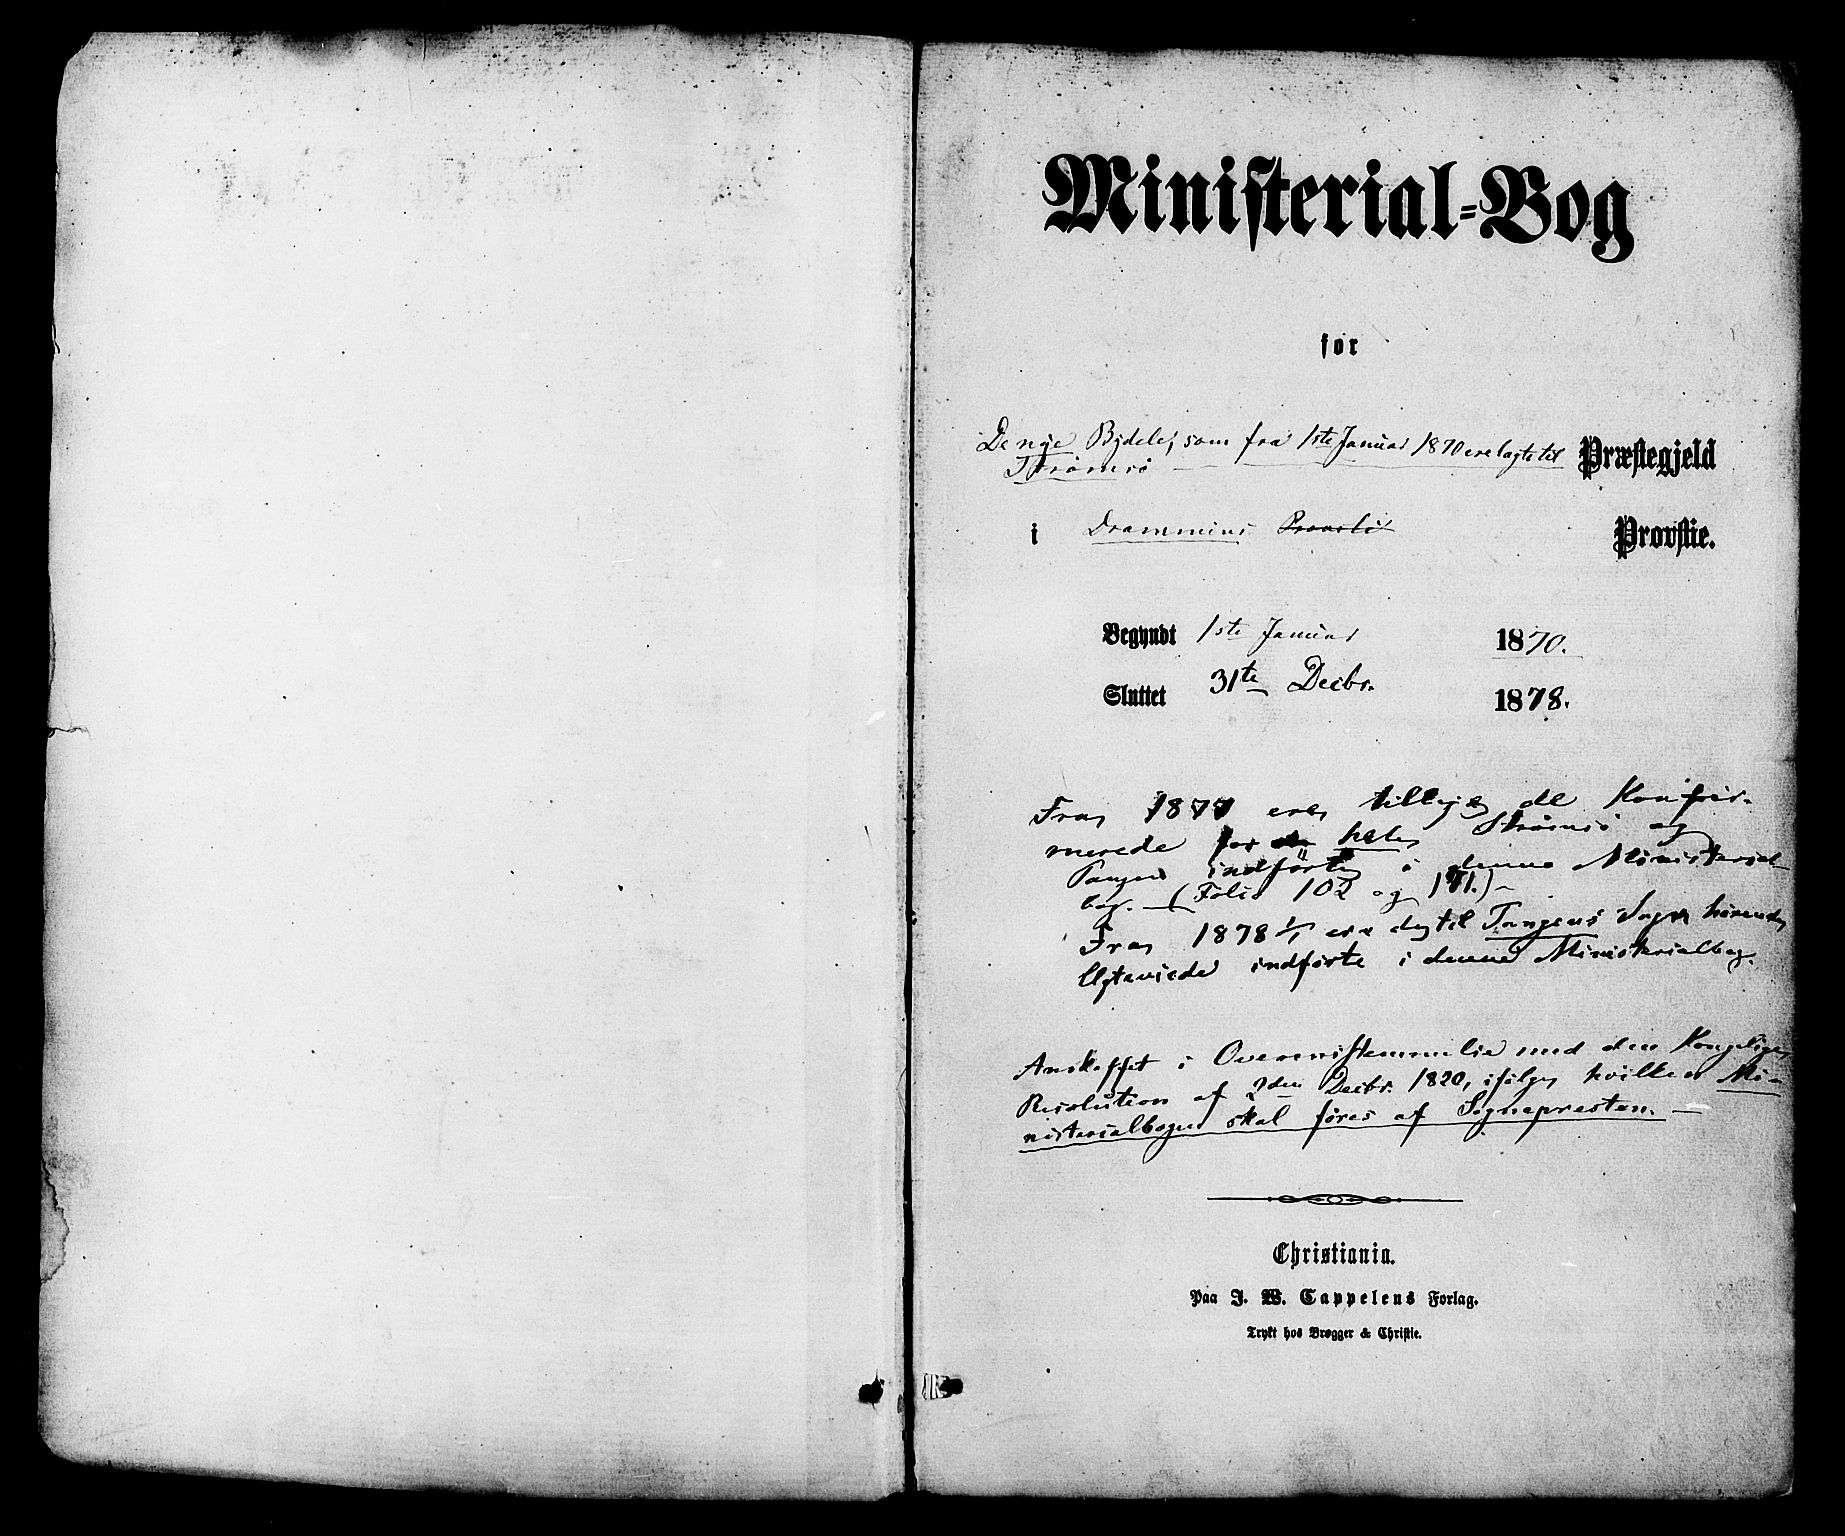 Ministerial-Bog
for
De nye Bydele, som fra 1ste Januar 1870 ere lagte til Præstegjeld
Strømsö
i Drammens Provsti Provstie.
Begyndt 1ste Januar 1870.
Sluttet 31te Decbr. 1878.
Fra 1877 ere tillige de Konfir-
merede for hele Strømsö og
Tangen indførte i denne Ministerial-
bog. — (Folio 102 og 171.) —
Fra 1878 1/1 ere de til Tangens Sogn hørende
Ægteviede indførte i denne Ministerialbog.
Anskaffet i Overensstemmelse med den Kongelige
Resolution af 2den Decbr. 1820, ifølge hvilken Mi-
nisterialbogen skal føres af Sognepresten. —
Christiania.
Paa J. W. Cappelens Forlag.
Trykt hos Brøgger & Christie.